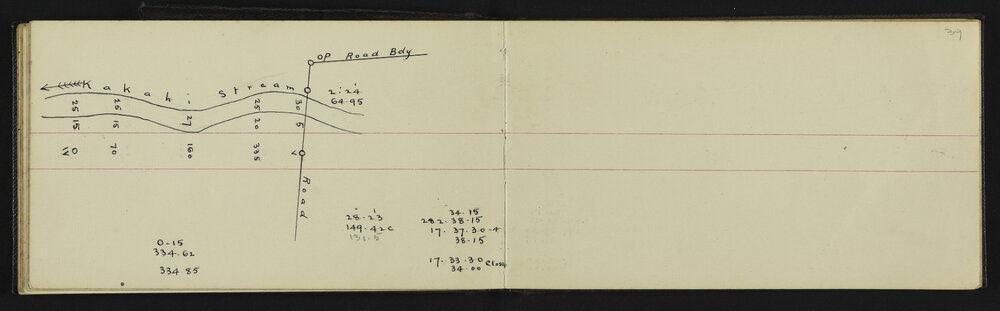 39
OP Road Bdy
Kakahi Stream
2.24
64.95
25 26 27 25 30
15 15 20 5
0 70 160 335
Road
28.23
149.42c
131.5
34.15
282.38.15
17.37.30.4
38.15
17.33.30 Close
34.00
0-15
334.62
334 85